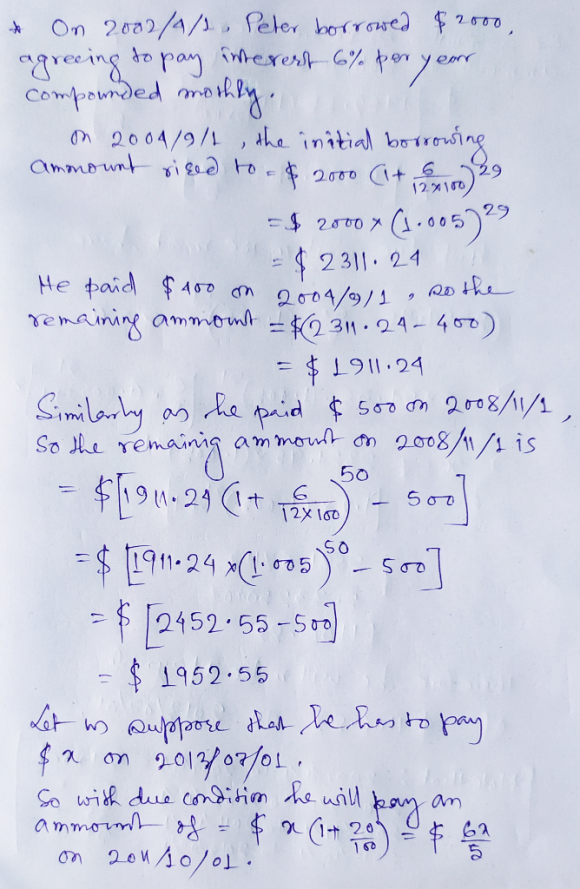 * On 2002/4/1, Peter borrowed $2000,
agreeing to pay interest 6% per year
compounded mothly.
On 2004/9/1, the initial borrowing
ammount rised to = $ 2000 (1+ 6/(12×100))^29
= $ 2000 × (1.005)^29
= $ 2311.24
He paid $400 on 2004/9/1, so the
remaining ammount = $(2311.24 - 400)
= $ 1911.24
Similarly as he paid $ 500 on 2008/11/1,
So the remainig ammount on 2008/11/1 is
= $[1911.24 (1+ 6/(12×100))^50 - 500]
= $ [1911.24 ×(1.005)^50 - 500]
= $ [2452.55 - 500]
= $ 1952.55
Let us suppose that he has to pay
$ x on 2013/07/01.
So with due condition he will pay an
ammount of = $ x (1+ 20/100) = $ 6x/5
on 2011/10/01.